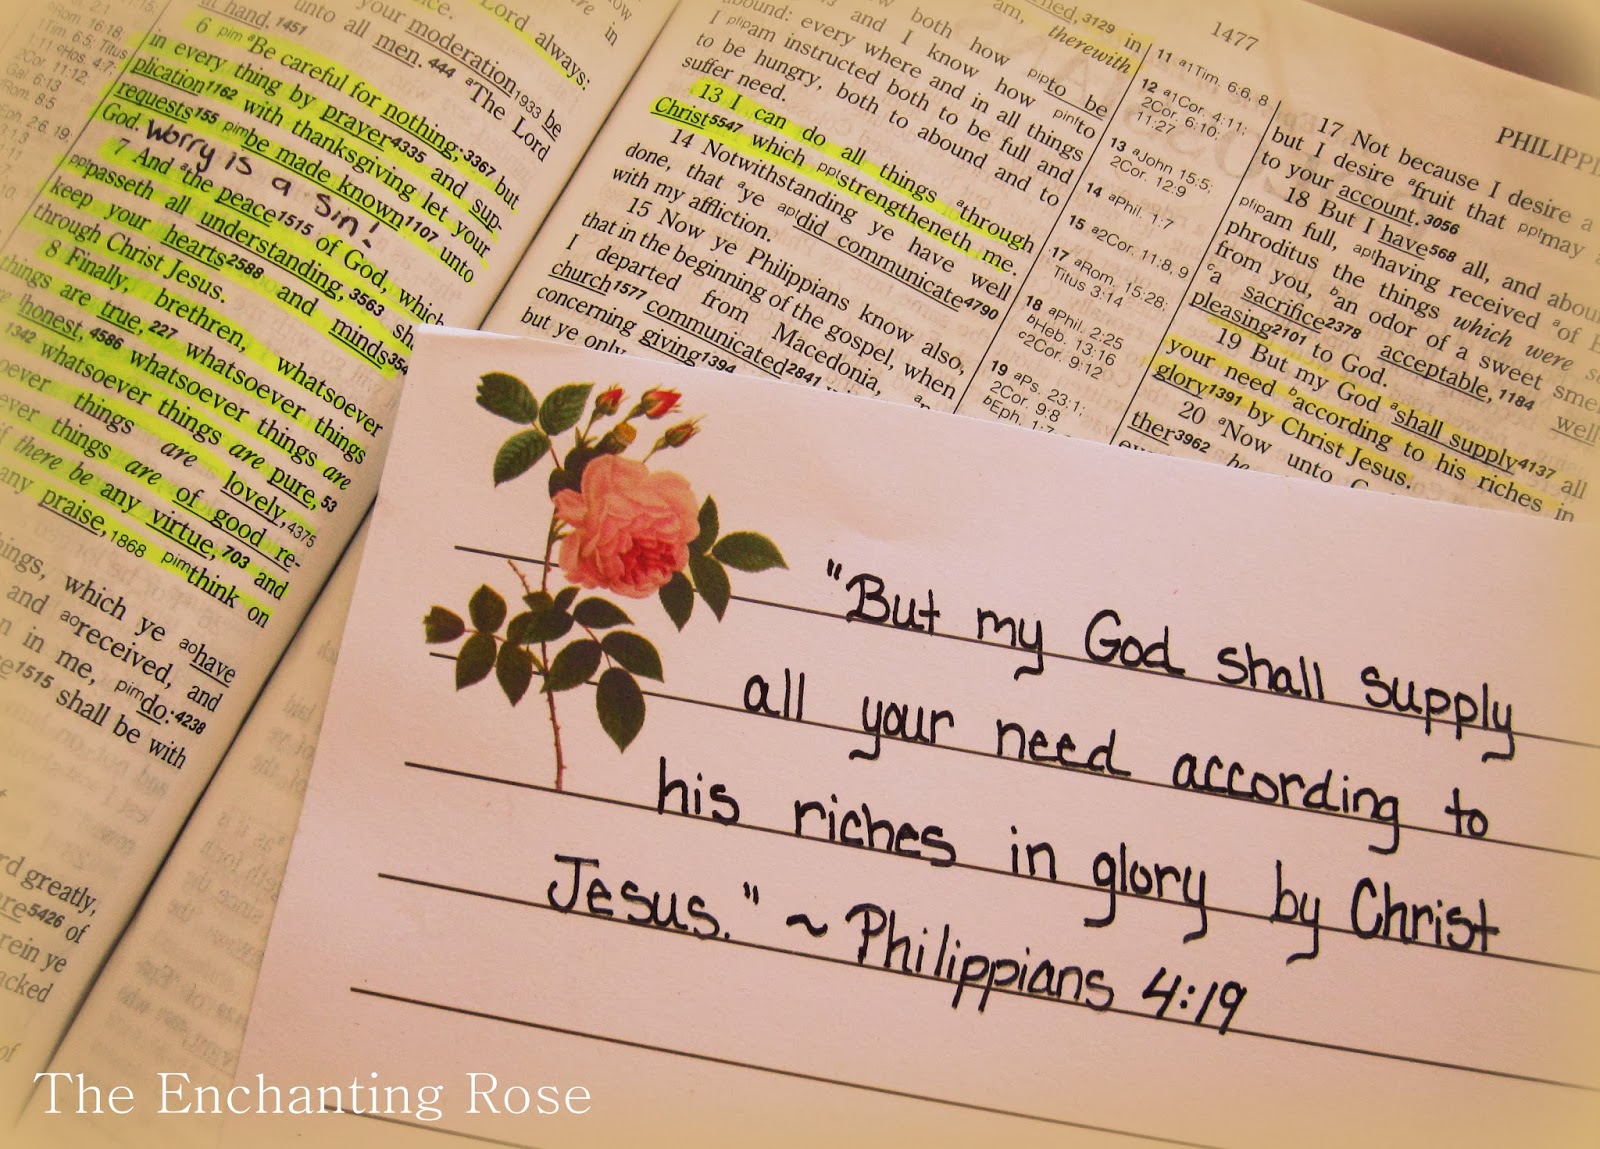 Lord always:
at hand, 1451
unto all men. 444 aThe Lord
your moderation1933 be
6 pim aBe careful for nothing;3367 but
in every thing by prayer4335 and sup-
plication1162 with thanksgiving let your
requests155 pimbe made known1107 unto
God. Worry is a sin!
7 And athe peace1515 of God, which
pptpasseth all understanding,3563
keep your hearts2588 and minds
through Christ Jesus.
8 Finally, brethren, whatsoever
things are true,227 whatsoever things
honest,4586 whatsoever things are
1342 whatsoever things are pure,53
things are lovely,4375
things are of good re-
if there be any virtue,703 and
any praise,1868 pimthink on
which ye aohave
and aoreceived, and
in me, pimdo:4238
1515 shall be with
greatly,
5426 of
ye
1477
both how piptobe
and I know how pinto
every where and in all things
I pfipam instructed both to be full and
to be hungry, both to abound and to
suffer need.
13 I can do all things athrough
Christ5547 which pptstrengtheneth me.
14 Notwithstanding ye have well
done, that aye apidid communicate4790
with my affliction.
15 Now ye Philippians know also,
that in the beginning of the gospel, when
I departed from Macedonia,
church1577 communicated2841
concerning giving1394
but ye only
3129 in
therewith
11 a1Tim. 6:6, 8
12 a1Cor. 4:11;
2Cor. 6:10;
11:27
13 aJohn 15:5;
2Cor. 12:9
14 aPhil. 1:7
15 a2Cor. 11:8, 9
17 aRom. 15:28;
Titus 3:14
18 aPhil. 2:25
bHeb. 13:16
c2Cor. 9:12
19 aPs. 23:1;
2Cor. 9:8
bEph. 1:7
17 Not because I desire a
but I desire afruit that pptmay
to your account.3056
18 But I have568 all, and
pfipam full, apthaving received aof
phroditus the things which were
from you, ban odor of a sweet
ca sacrifice2378 acceptable,1184 well-
pleasing2101 to God.
19 But my God ashall supply4137 all
your need baccording to his riches in
glory1391 by Christ Jesus.
20 aNow unto
"But my God shall supply
all your need according to
his riches in glory by Christ
Jesus." ~ Philippians 4:19
The Enchanting Rose